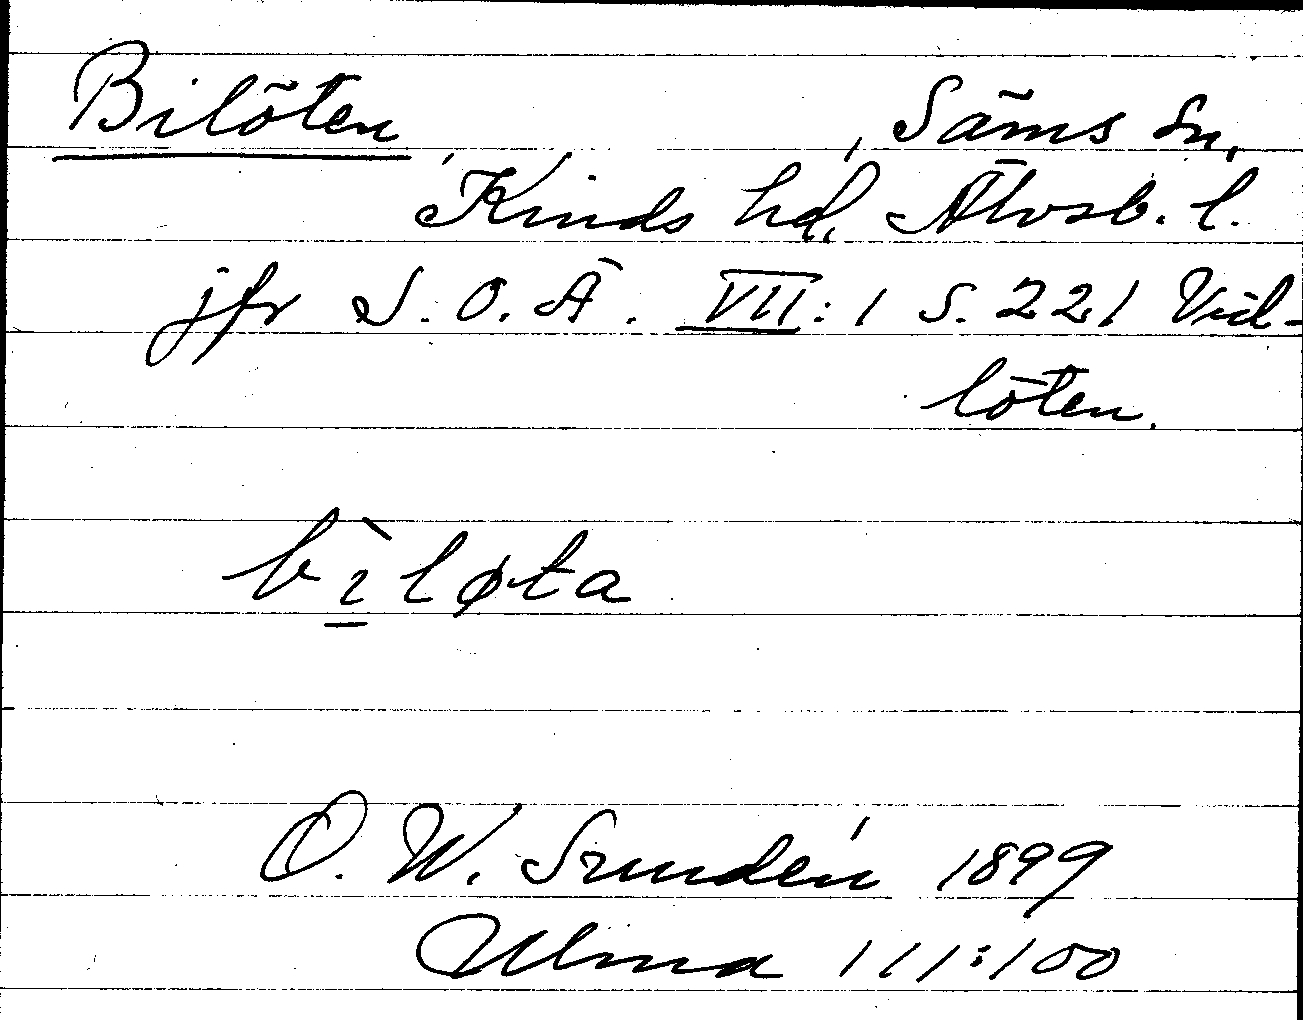 Bilöten, Säms sn,
Kinds hd, Älvsb. l.
jfr S. O. Ä. VII: 1 S. 221 Vid-
löten.
bìløta
O. W. Sundén 1899
Ulma 111:100